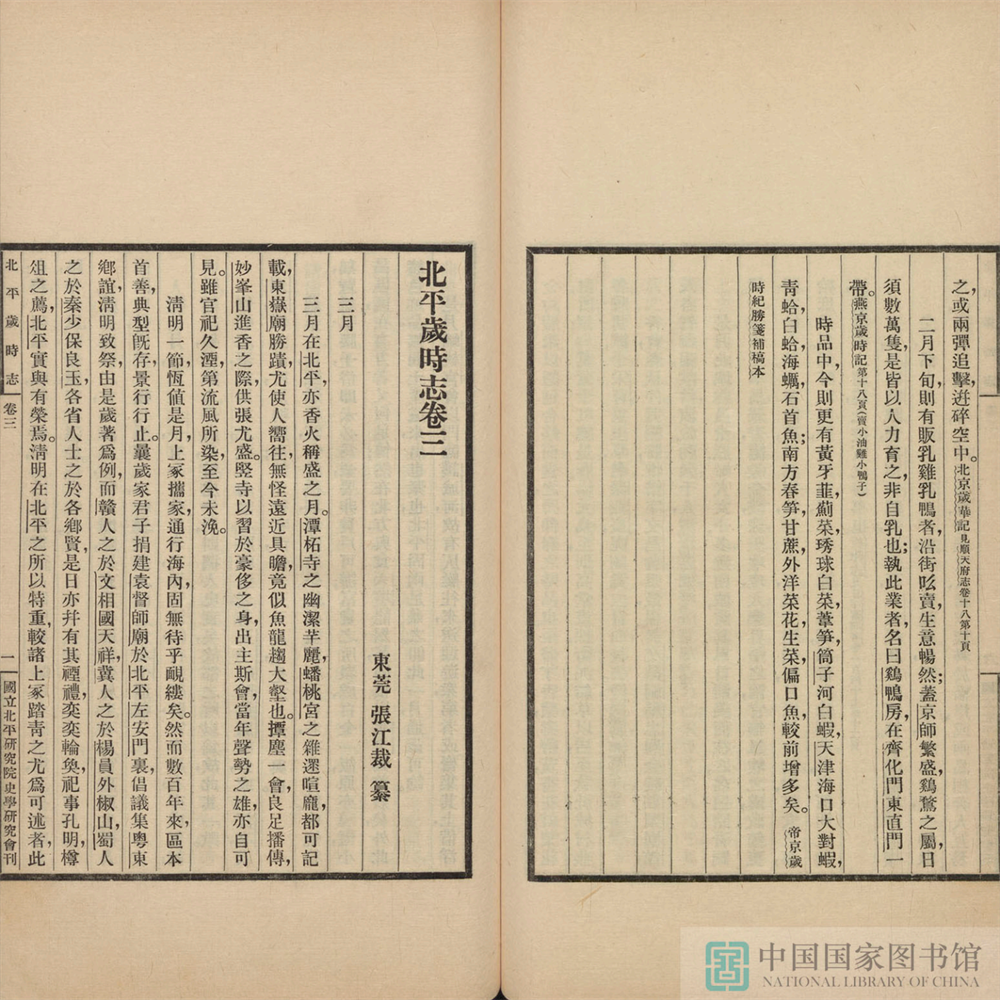 之，或兩彈追擊，迸碎空中。北京歲華記見順天府志卷十八第十頁
二月下旬，則有販乳雞乳鴨者，沿街吆賣，生意暢然；蓋京師繁盛，鷄鶩之屬，日
須數萬隻，是皆以人力育之，非自乳也；執此業者，名曰鷄鴨房，在齊化門東直門一
帶。燕京歲時記第十八頁（賣小油雞小鴨子）
時品中，今則更有黃牙韮，薊菜，琇球白菜，葦笋，筒子河白蝦，天津海口大對蝦，
青蛤，白蛤，海蠣，石首魚；南方春笋，甘蔗，外洋菜花，生菜，偏口魚，較前增多矣。帝京歲
時紀勝箋補稿本
北平歲時志卷三
東莞 張江裁 纂
三月
三月在北平，亦香火稱盛之月。潭柘寺之幽潔芊麗，蟠桃宮之雜遝喧龐，都可記
載，東嶽廟勝蹟，尤使人嚮往，無怪遠近具瞻，竟似魚龍趨大壑也。撢塵一會，良足播傳，
妙峯山進香之際，供張尤盛。竪寺以習於豪侈之身，出主斯會，當年聲勢之雄，亦自可
見。雖官祀久湮，第流風所染，至今未浼。
清明一節，恆値是月，上冢攜家，通行海內，固無待乎覼縷矣。然而數百年來，區本
首善，典型旣存，景行行止。曩歲家君子捐建袁督師廟於北平左安門裏，倡議集粵東
鄉誼，淸明致祭，由是歲著爲例，而贛人之於文相國天祥，冀人之於楊員外椒山，蜀人
之於秦少保良玉，各省人士之於各鄉賢，是日亦幷有其禋禮，奕奕輪奐，祀事孔明，樽
俎之薦，北平實與有榮焉。淸明在北平之所以特重，較諸上冢踏靑之尤爲可述者，此
北平歲時志
卷三
一
國立北平研究院史學研究會刊
中国国家图书馆
NATIONAL LIBRARY OF CHINA